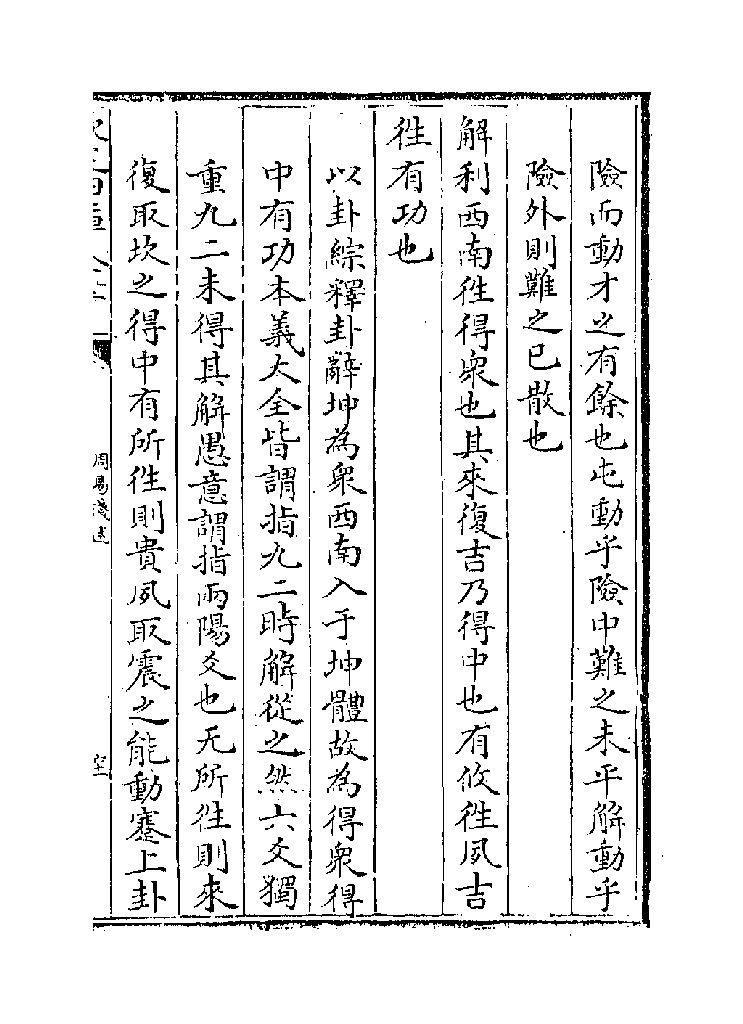 險而動才之有餘也屯動乎險中難之未平解動乎
險外則難之已散也
解利西南徃得衆也其來復吉乃得中也有攸徃夙吉
徃有功也
以卦綜釋卦辭坤為衆西南入于坤體故為得衆得
中有功本義大全皆謂指九二時解從之然六爻獨
重九二未得其解愚意謂指兩陽爻也无所徃則來
復取坎之得中有所徃則貴夙取震之能動蹇上卦
周易淺述